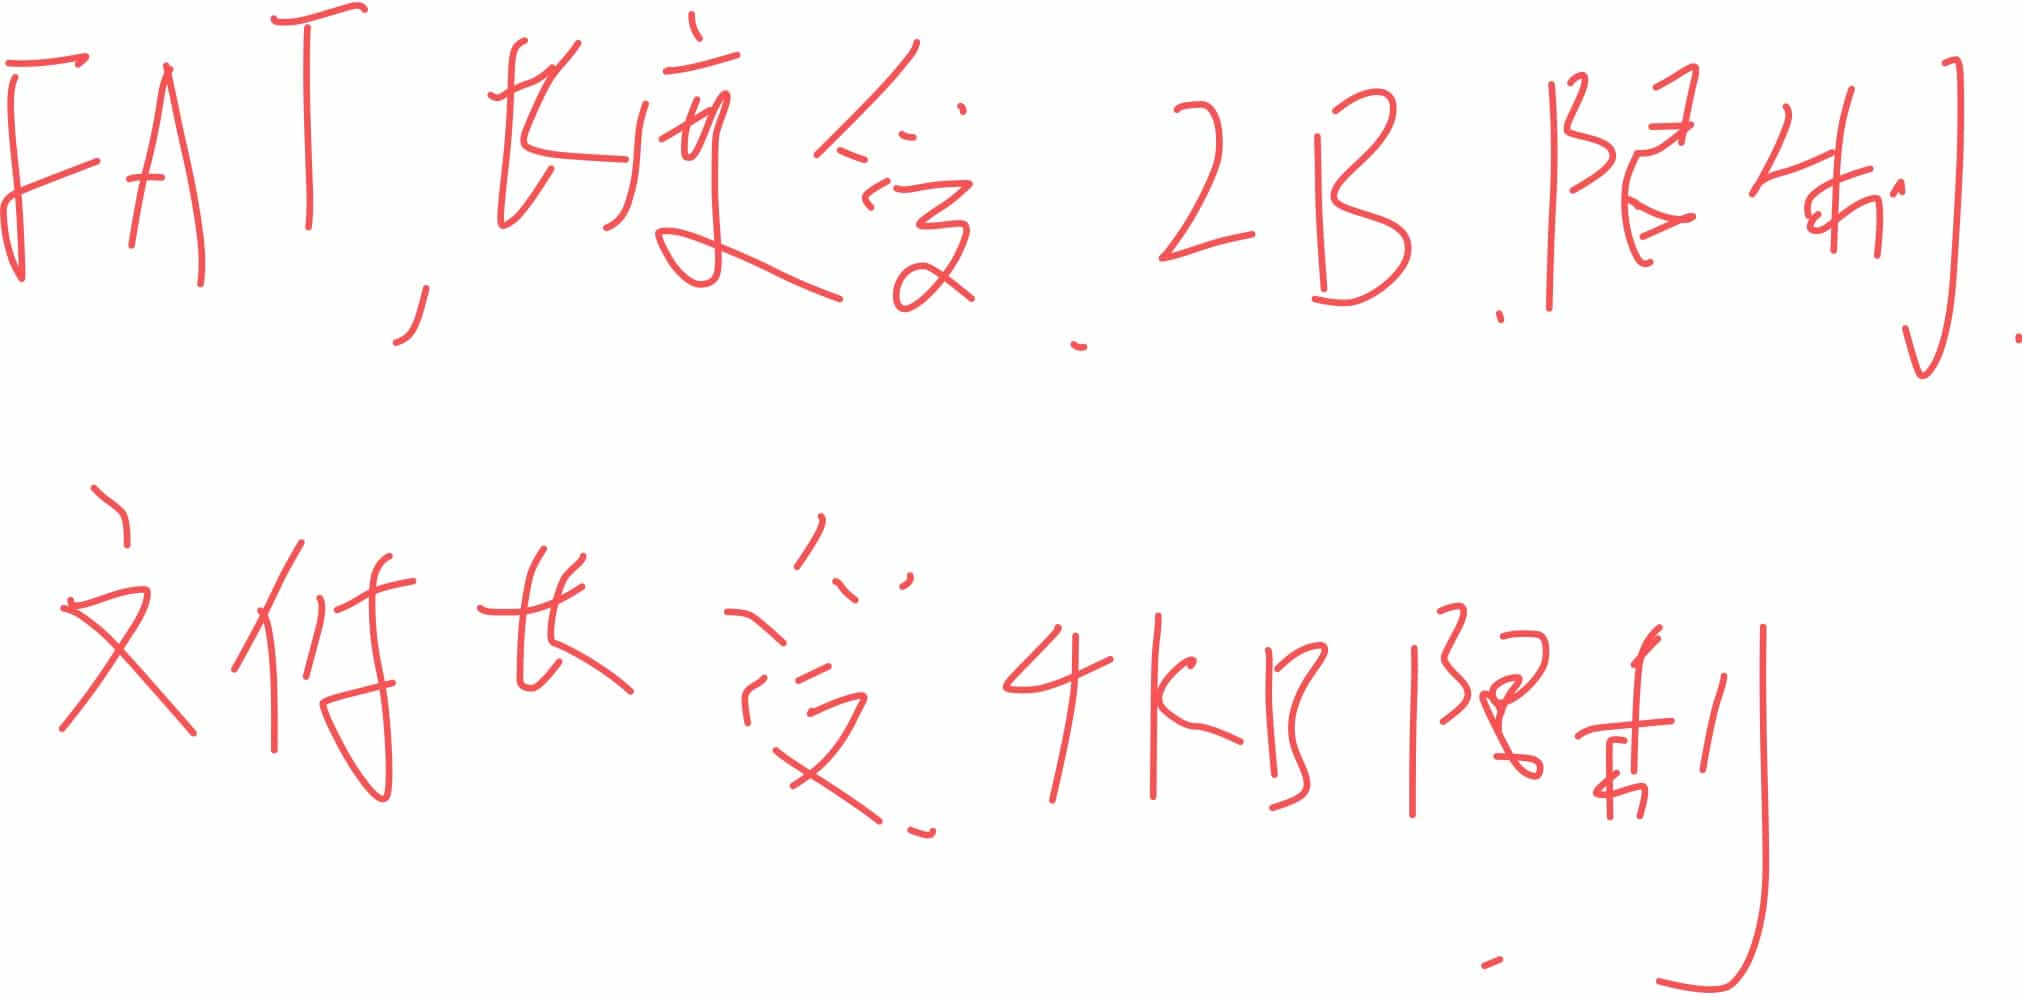 FAT,长度受2B限制
文件长受4KB限制